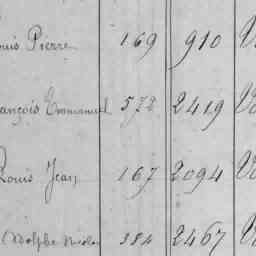 ouis Pierre 169 910 V
rançois Emmanuel 572 2419 Vo
Louis Jean 167 2094 Vo
Adolphe Nicolas 384 2467 V